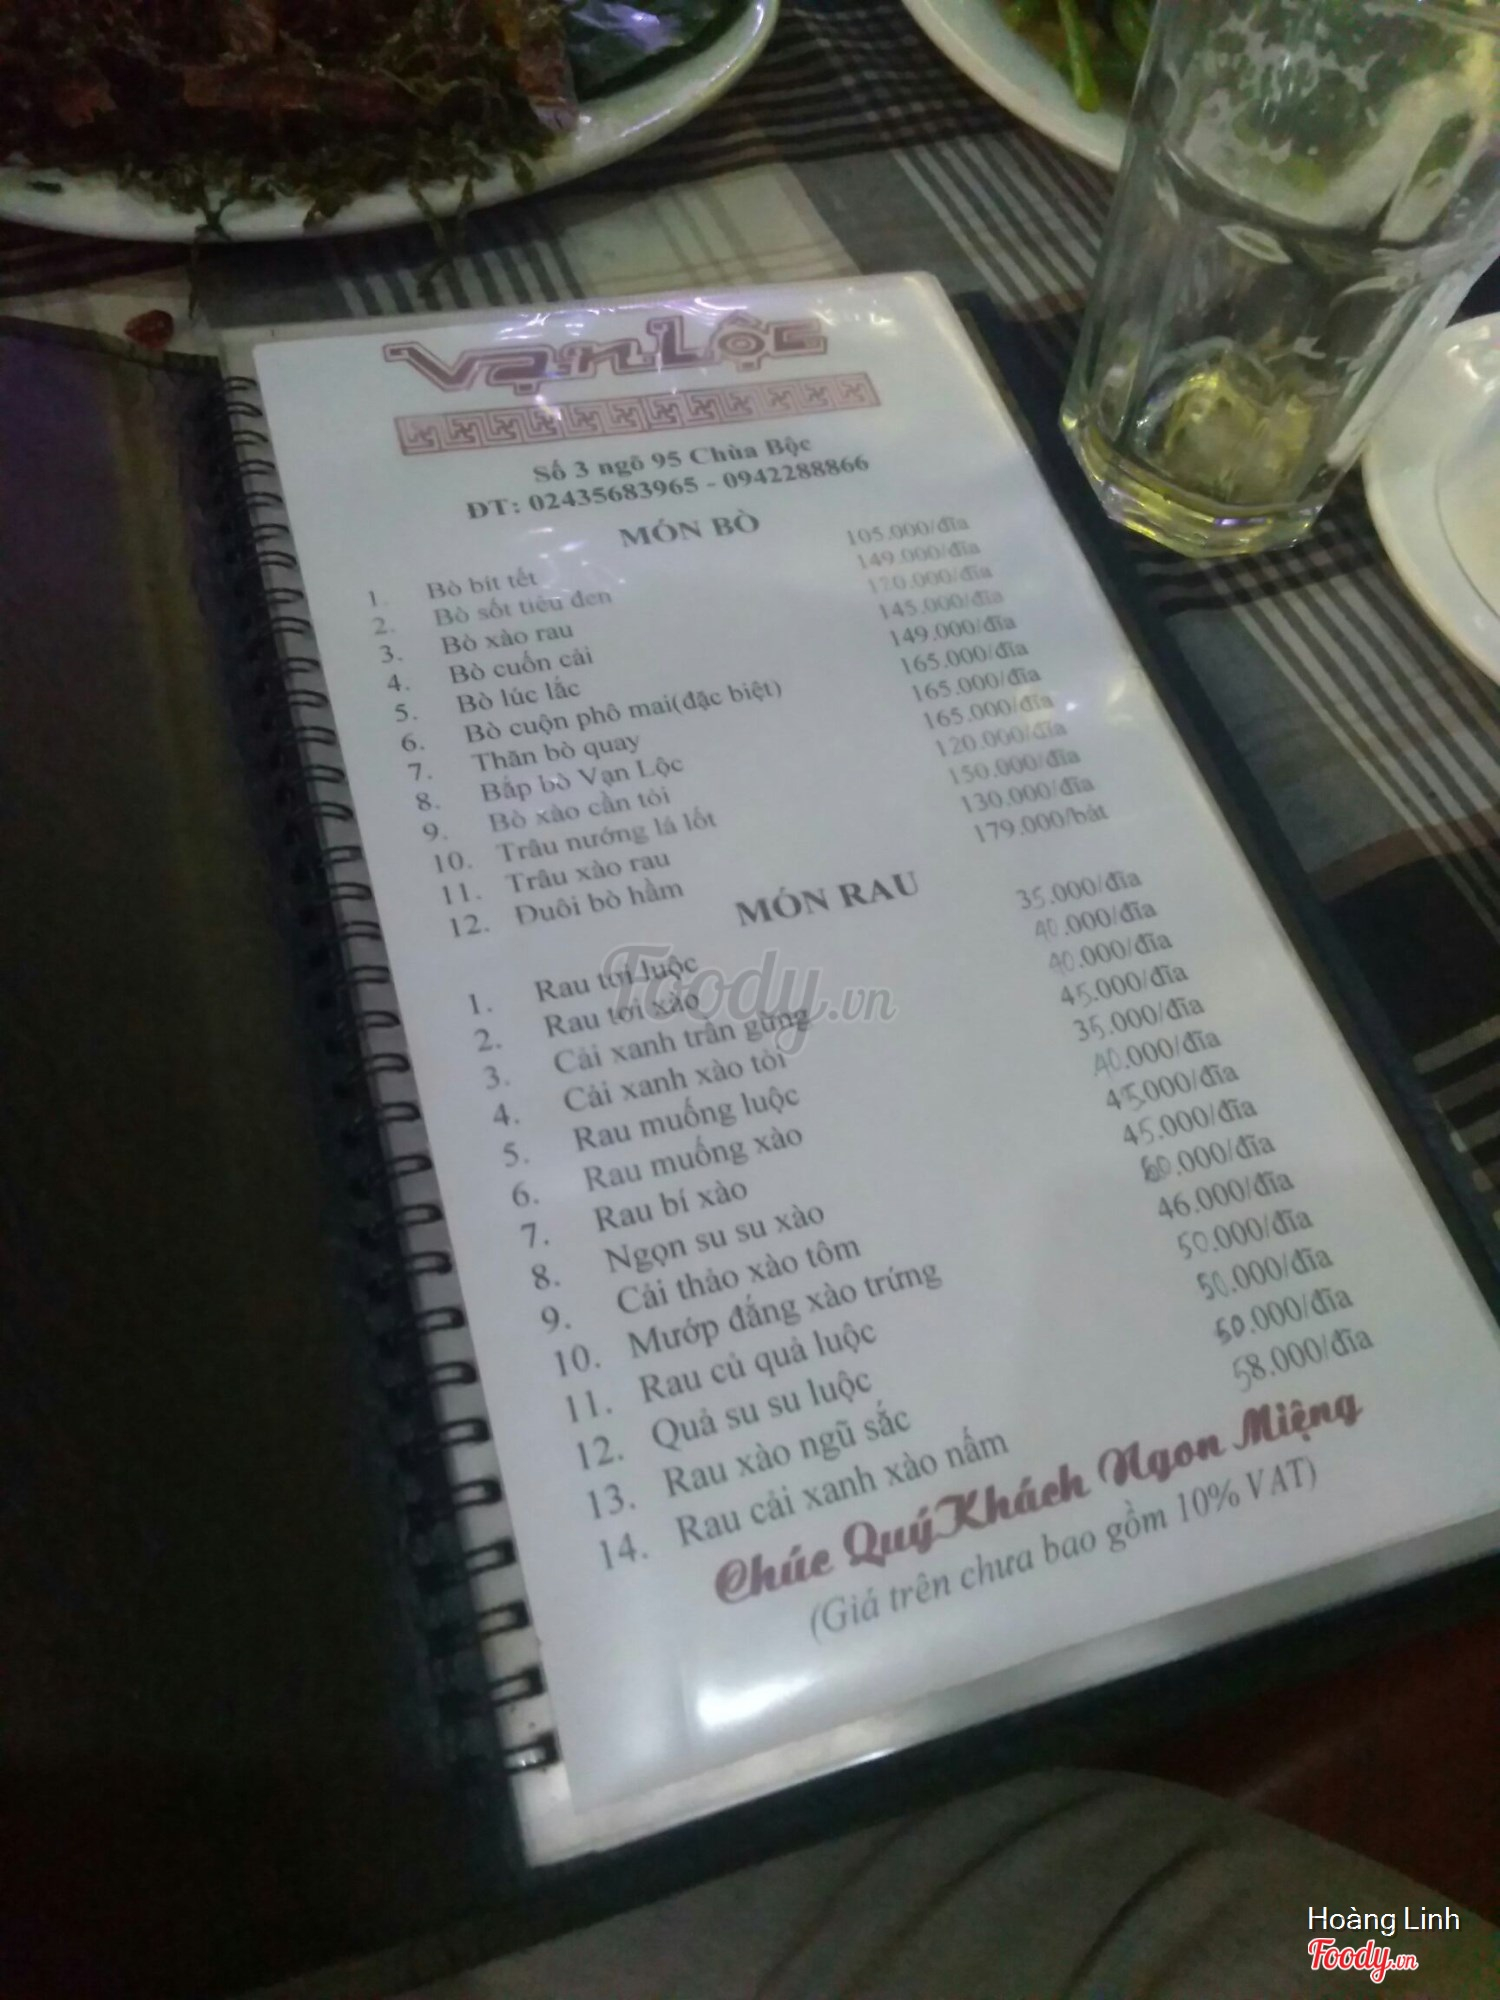 Vạn Lộc
Số 3 ngõ 95 Chùa Bộc
ĐT: 02435683965 - 0942288866
MÓN BÒ
1. Bò bít tết 105.000/đĩa
2. Bò sốt tiêu đen 149.000/đĩa
3. Bò xào rau 120.000/đĩa
4. Bò cuốn cải 145.000/đĩa
5. Bò lúc lắc 149.000/đĩa
6. Bò cuộn phô mai(đặc biệt) 165.000/đĩa
7. Thăn bò quay 165.000/đĩa
8. Bắp bò Vạn Lộc 165.000/đĩa
9. Bò xào cần tỏi 120.000/đĩa
10. Trâu nướng lá lốt 150.000/đĩa
11. Trâu xào rau 130.000/đĩa
12. Đuôi bò hầm 179.000/bát
MÓN RAU
1. Rau tơi luộc 35.000/đĩa
2. Rau tơi xào 40.000/đĩa
3. Cải xanh trần gừng 40.000/đĩa
4. Cải xanh xào tỏi 45.000/đĩa
5. Rau muống luộc 35.000/đĩa
6. Rau muống xào 40.000/đĩa
7. Rau bí xào 45.000/đĩa
8. Ngọn su su xào 45.000/đĩa
9. Cải thảo xào tôm 60.000/đĩa
10. Mướp đắng xào trứng 46.000/đĩa
11. Rau củ quả luộc 50.000/đĩa
12. Quả su su luộc 50.000/đĩa
13. Rau xào ngũ sắc 50.000/đĩa
14. Rau cải xanh xào nấm 58.000/đĩa
Chúc Quý Khách Ngon Miệng
(Giá trên chưa bao gồm 10% VAT)
Foody.vn
Hoàng Linh
Foody.vn